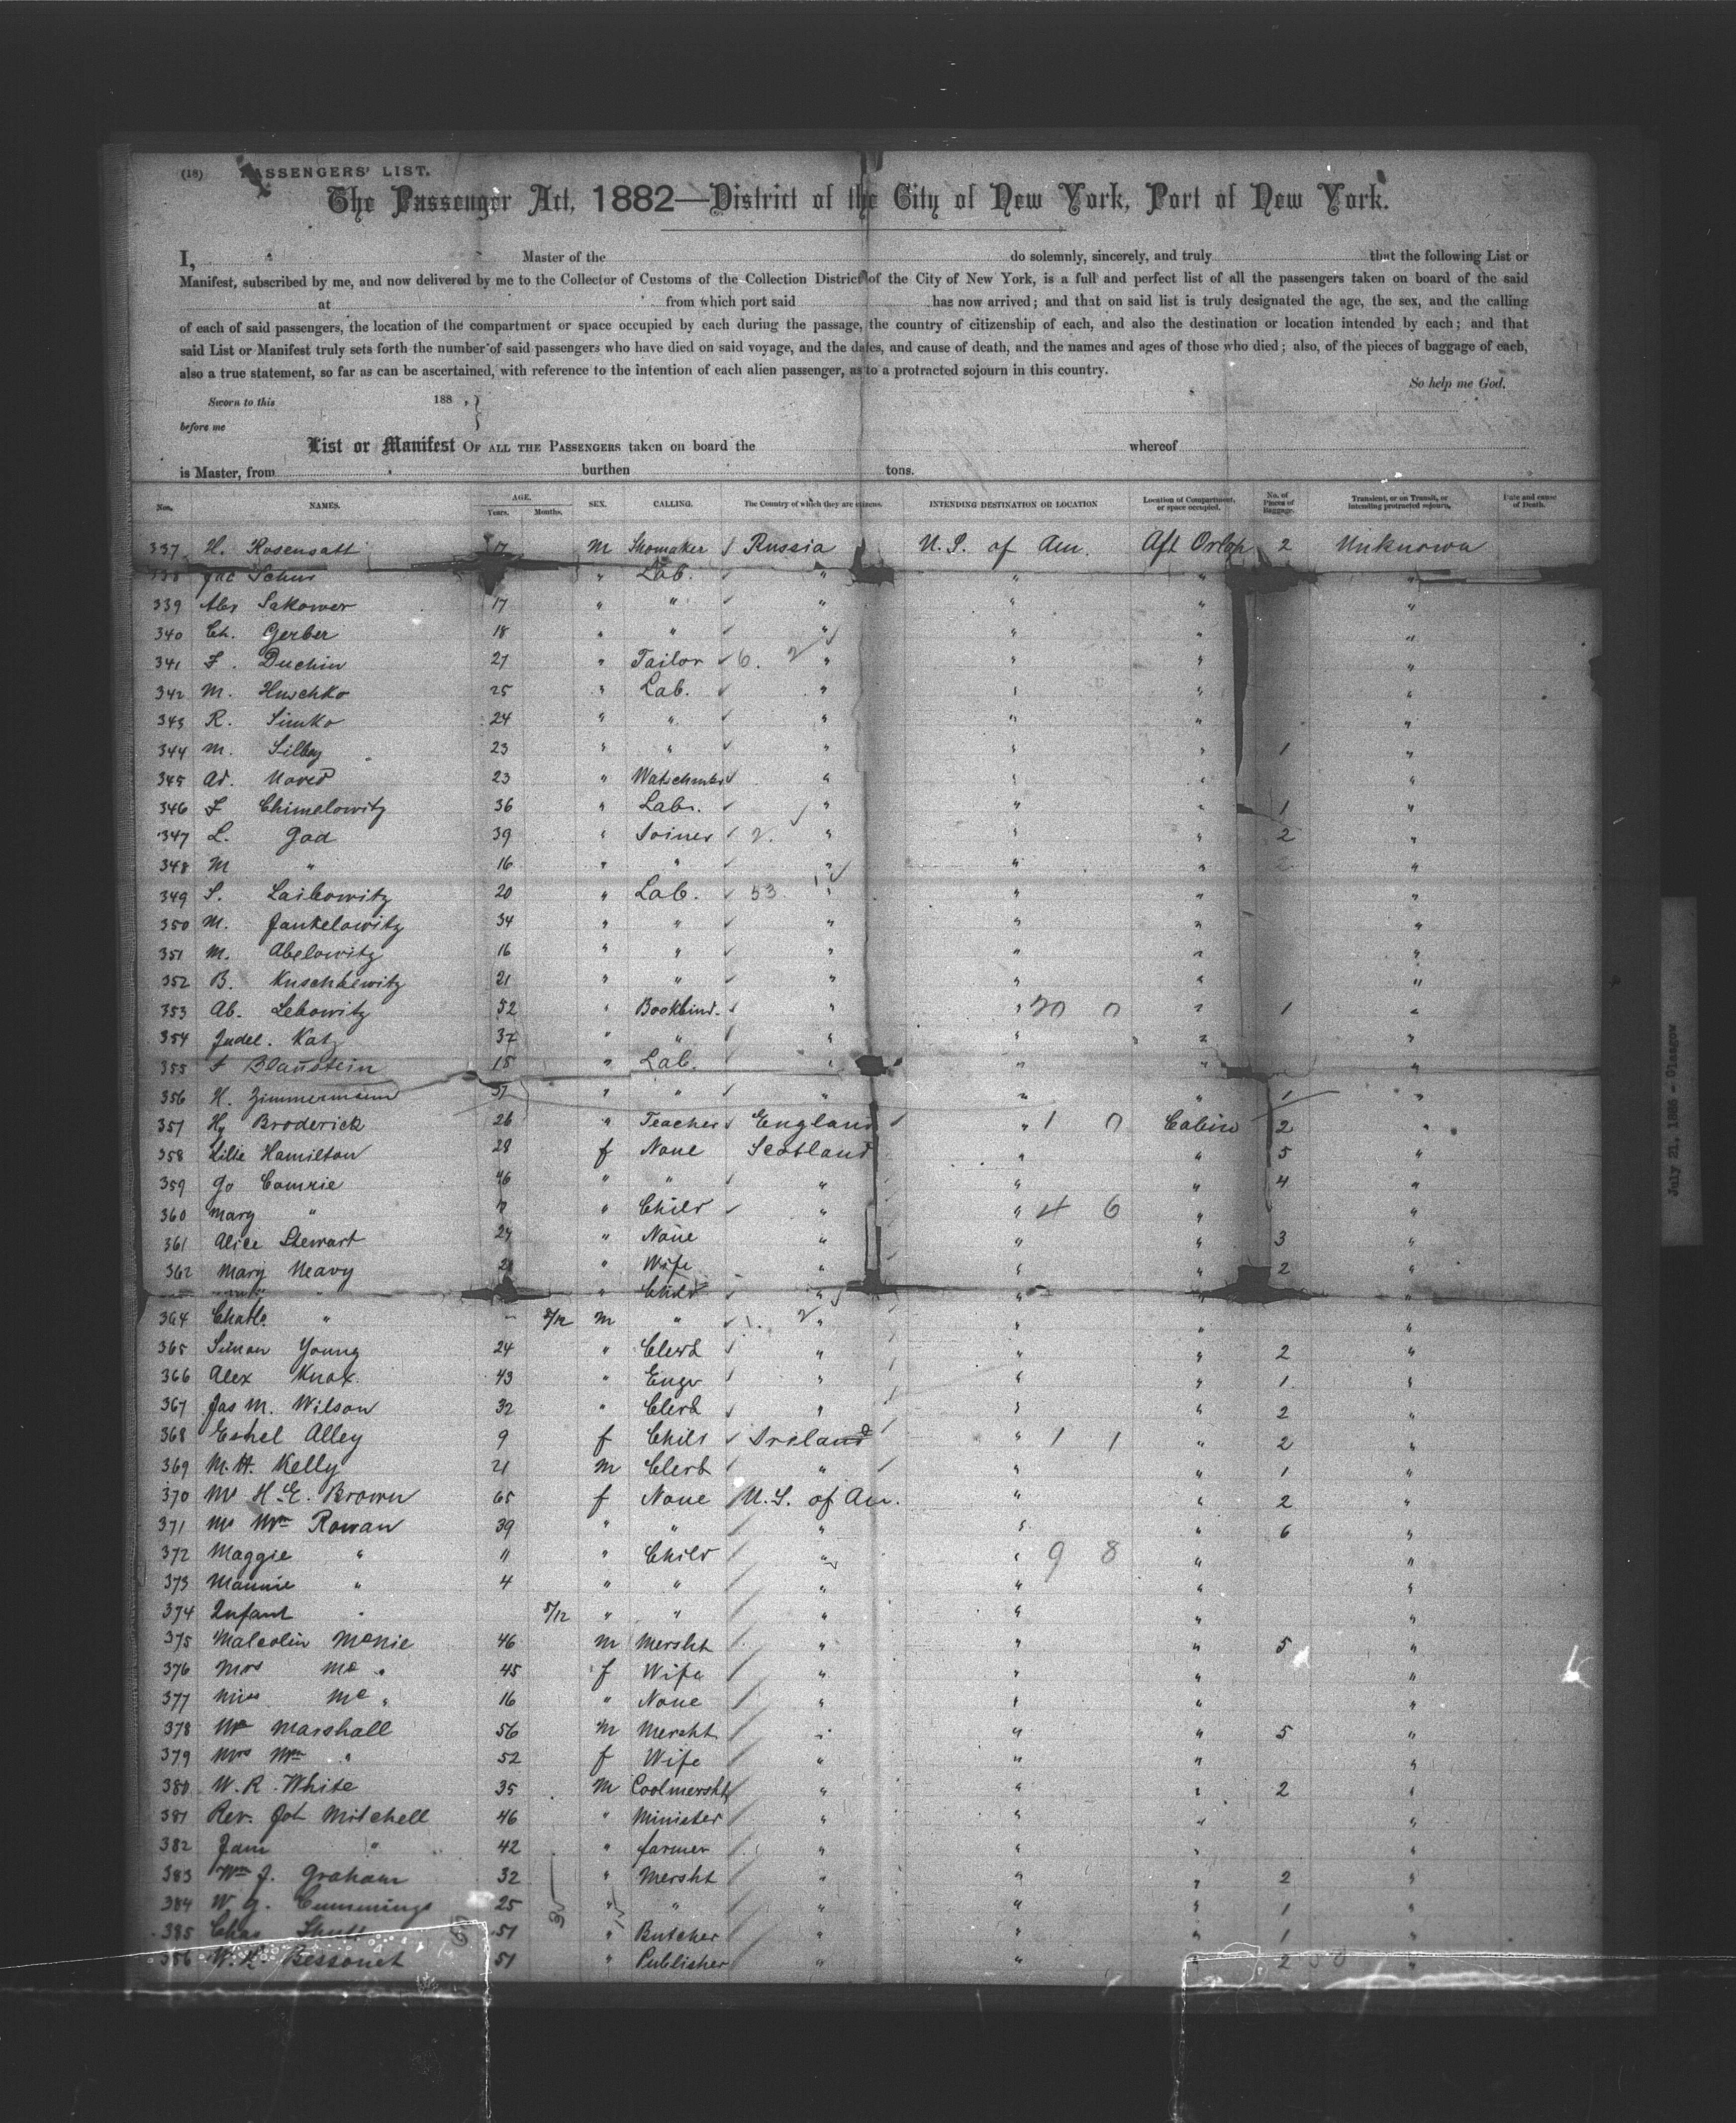 (18) PASSENGERS' LIST.
The Passenger Act, 1882—District of the City of New York, Port of New York.
I, Master of the do solemnly, sincerely, and truly that the following List or
Manifest, subscribed by me, and now delivered by me to the Collector of Customs of the Collection District of the City of New York, is a full and perfect list of all the passengers taken on board of the said
at from which port said has now arrived; and that on said list is truly designated the age, the sex, and the calling
of each of said passengers, the location of the compartment or space occupied by each during the passage, the country of citizenship of each, and also the destination or location intended by each; and that
said List or Manifest truly sets forth the number of said passengers who have died on said voyage, and the dates, and cause of death, and the names and ages of those who died; also, of the pieces of baggage of each,
also a true statement, so far as can be ascertained, with reference to the intention of each alien passenger, as to a protracted sojourn in this country.
So help me God.
Sworn to this 188 ,
before me
List or Manifest OF ALL THE PASSENGERS taken on board the whereof
is Master, from burthen tons.
Nos. NAMES. AGE. Years. Months. SEX. CALLING. The Country of which they are citizens. INTENDING DESTINATION OR LOCATION Location of Compartment, or space occupied. No. of Pieces of Baggage. Transient, or on Transit, or intending protracted sojourn. Date and cause of Death.
337 H. Rosensatt 17 M Shomaker Russia U.S. of Am. Aft Orlop 2 Unknown
Jac Schur " Lab. " " " "
339 Alex Sakower 17 " " " " " "
340 Ch. Gerber 18 " " " " " "
341 F. Duchin 27 " Tailor 6. 2 " " " "
342 M. Huschko 25 " Lab. " " " "
343 R. Simko 24 " " " " " "
344 M. 23 " " " " " 1 "
345 Ad. 23 " " " " "
346 F Chimelowitz 36 " Lab. " " " 1 "
347 L. Gad 39 " Joiner 2. " " " 2 "
348 M " 16 " " " " " "
349 S. Laibowitz 20 " Lab. 53 " " " "
350 M. Jankelowitz 34 " " " " " "
351 M. Abelowitz 16 " " " " " "
352 B. Kuschkewitz 21 " " " " " "
353 Ab. Lebowitz 52 " Bookbind. " " 20 0 " 1 "
354 Judel. Katz 37 " " " " " "
355 Blaustein 18 " Lab. " " " "
356 H. Zimmermann 37 " " " " " 1 "
357 Hy Broderick 26 " Teacher England " 1 0 Cabin 2 "
358 Lillie Hamilton 28 f None Scotland " " 5 "
359 Jo Comrie 46 " " " " " 4 "
360 Mary " " Child " " 4 6 " "
361 Alice Stewart 24 " None " " " 3 "
362 Mary Neavy " Wife " " " 2 "
" Child " " " "
364 Charls. " 8/12 M " " " " "
365 Simon Young 24 " Clerk " " " 2 "
366 Alex Knox. 43 " Engr " " " 1 "
367 Jas M. Wilson 32 " Clerk " " " 2 "
368 Ethel Alley 9 f Child Ireland " 1 1 " 2 "
369 M.H. Kelly 21 M Clerk " " " 1 "
370 Ms H.E. Brown 65 f None U.S. of Am. " " 2 "
371 Ms Wm Rowan 39 " " " " " 6 "
372 Maggie " 11 " Child " " 9 8 " "
373 Mannie " 4 " " " " " "
374 Infant " 8/12 " " " " " "
375 Malcolm McNie 46 M Mersht " " " 5 "
376 Mrs Mc " 45 f Wife " " " "
377 Miss Mc " 16 " None " " " "
378 Wm Marshall 56 M Mersht " " " 5 "
379 Mrs Wm " 52 f Wife " " " "
380 W. R. White 35 M Coolmersht " " " 2 "
381 Rev. Joh Mitchell 46 " Minister " " " "
382 Jam " 42 " farmer " " " "
383 Wm J. Graham 32 " Mersht " " " 2 "
384 W. G. Cummings 25 " " " " " 1 "
385 Chas 51 " Butcher " " " 1 "
386 W. K. Bessonet 51 " Publisher " " " 2 "
July 21, 1886 - Glasgow